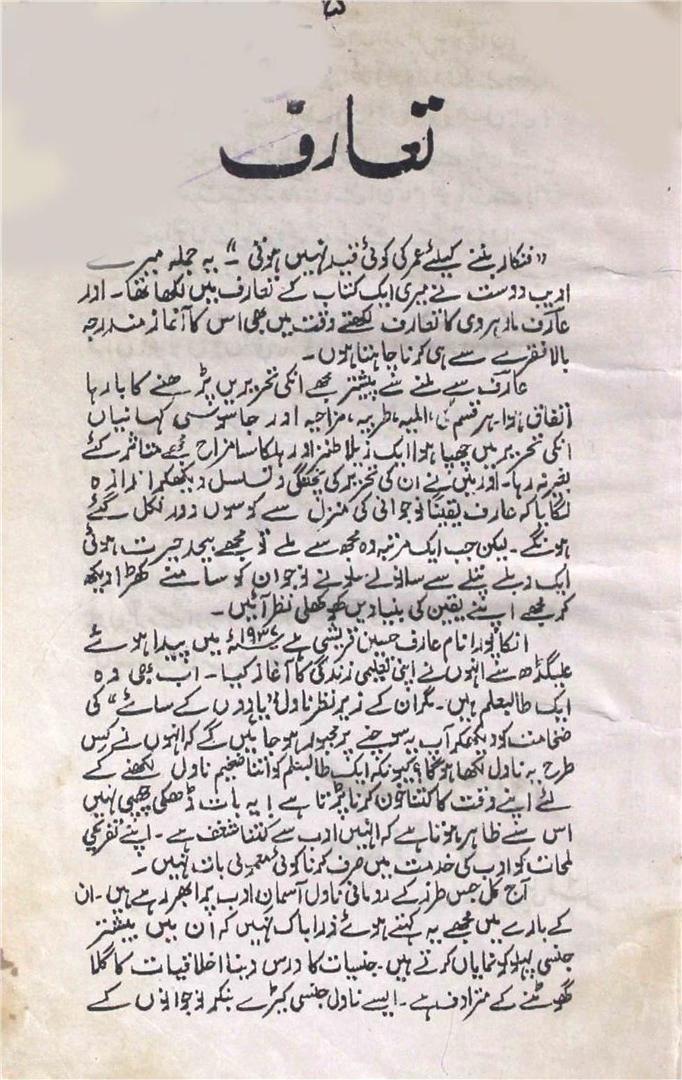 ۵
تعارف
”فنکار بننے کیلئے عمر کی کوئی قید نہیں ہوتی ۔“ یہ جملہ میرے
ادیب دوست نے میری ایک کتاب کے تعارف میں لکھا تھا۔ اور
عارف مارہروی کا تعارف لکھتے وقت میں بھی اس کا آغاز مندرجہ
بالا فقرے سے ہی کرنا چاہتا ہوں۔
عارف سے ملنے سے پیشتر مجھے انکی تحریریں پڑھنے کا بارہا
اتفاق ہوا۔ ہر قسم کی ، المیہ، طربیہ، مزاحیہ اور جاسوسی کہانیاں
انکی تحریر میں چھپا ہوا ایک زہریلا طنز اور ہلکا سا مزاح مجھے متاثر کئے
بغیر نہ رہا۔ اور میں نے ان کی تحریر کی پختگی و تسلسل دیکھکر اندازہ
لگایا کہ عارف یقیناً نوجوانی کی منزل سے کوسوں دور نکل گئے
ہونگے۔ لیکن جب ایک مرتبہ وہ مجھ سے ملے تو مجھے بیحد حیرت ہوئی
ایک دبلے پتلے سے سانولے سلونے نوجوان کو سامنے کھڑا دیکھ
کر مجھے اپنے یقین کی بنیادیں کھوکھلی نظر آئیں۔
انکا پورا نام عارف حسین قریشی ہے میں پیدا ہوئے
علیگڈھ سے انہوں نے اپنی تعلیمی زندگی کا آغاز کیا۔ اب بھی وہ
ایک طالبعلم ہیں۔ مگر ان کے زیر نظر ناول ”یادوں کے سائے“ کی
ضخامت کو دیکھکر آپ یہ سوچنے پر مجبور ہو جائیں گے کہ انہوں نے کس
طرح یہ ناول لکھا ہوگا؟ کیونکہ ایک طالبعلم کو اتنا ضخیم ناول لکھنے کے
لئے اپنے وقت کا کتنا خون کرنا پڑتا ہے! یہ بات ڈھکی چھپی نہیں
اس سے ظاہر ہوتا ہے کہ انہیں ادب سے کتنا شغف ہے۔ اپنے تفریحی
لمحات کو ادب کی خدمت میں صرف کرنا کوئی معمولی بات نہیں۔
آج کل جس طرز کے رومانی ناول آسمان ادب پر ابھر رہے ہیں۔ ان
کے بارے میں مجھے یہ کہتے ہوئے ذرا باک نہیں کہ ان میں بیشتر
جنسی پہلو کو نمایاں کرتے ہیں۔ جنسیات کا درس دینا اخلاقیات کا گلا
گھونٹنے کے مترادف ہے۔ ایسے ناول جنسی کیڑے بنکر نوجوانوں کے